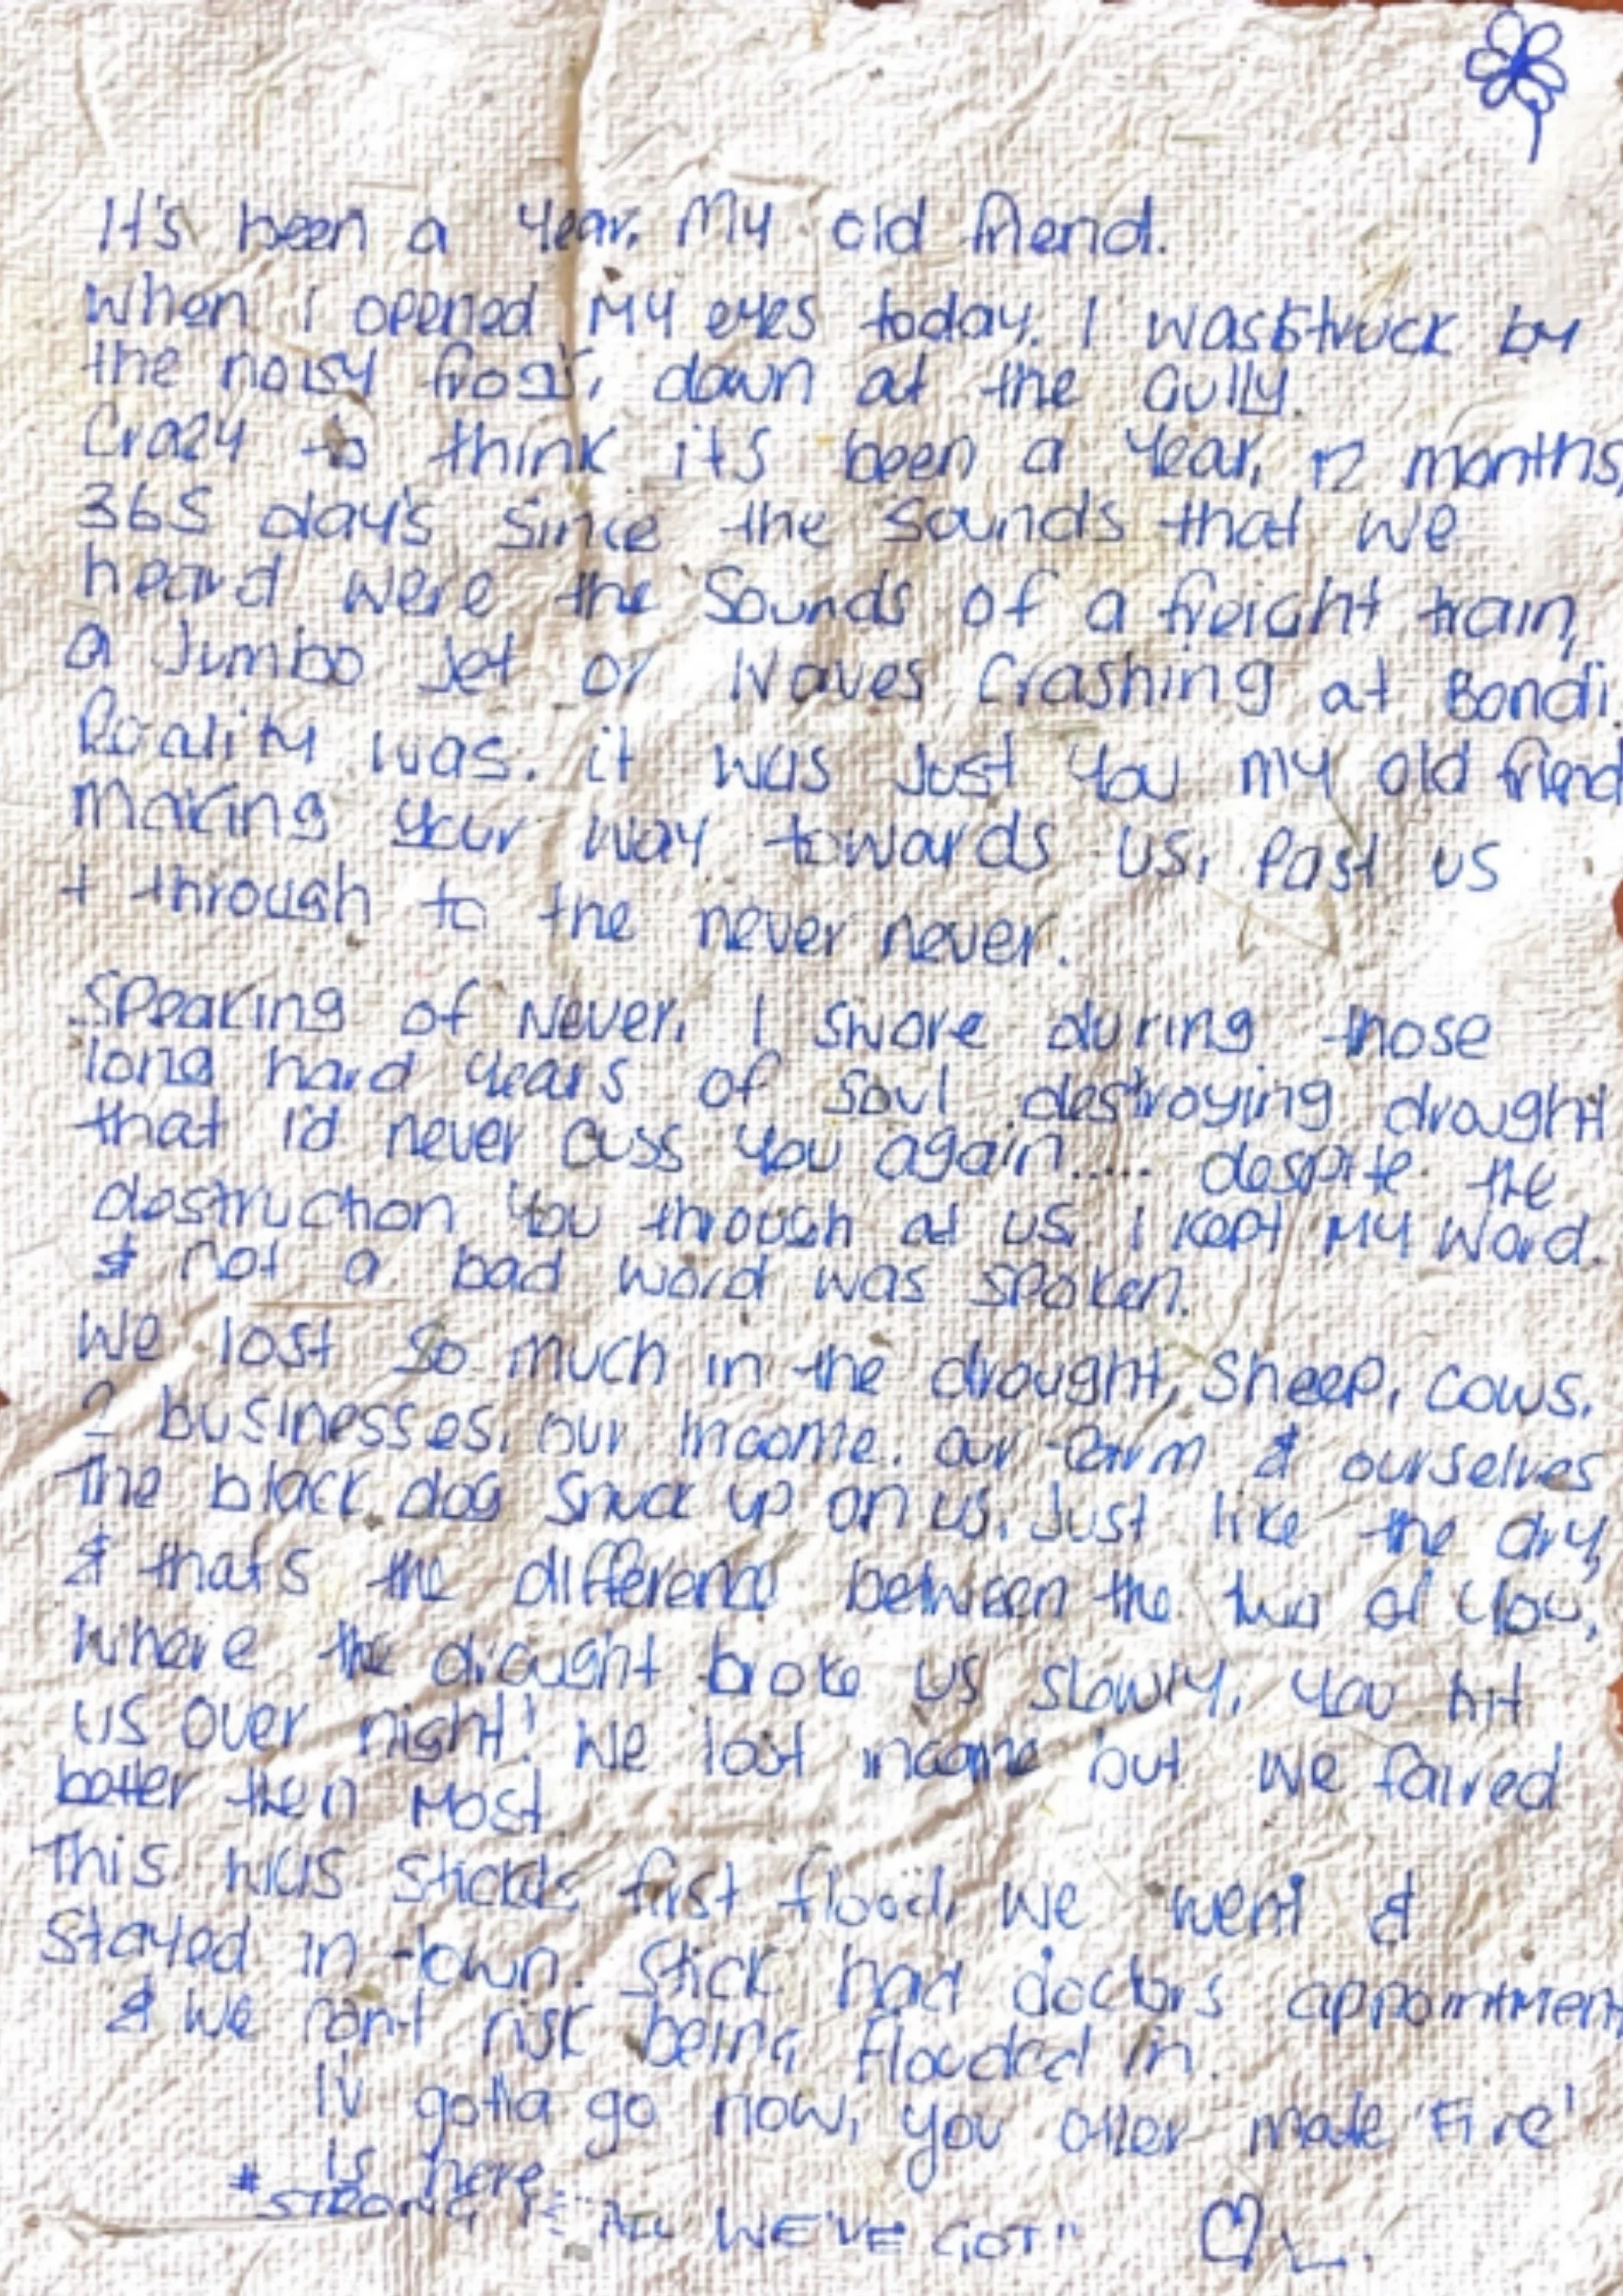 It's been a Year, My old friend.
When I opened My eyes today. I was struck by
the noisy frog's, down at the Gully.
Crazy to think it's been a Year, 12 months,
365 day's since the sounds that we
heard were the Sounds of a freight train,
a Jumbo Jet or Waves Crashing at Bondi
Reality was. it was Just You my old friend
Making your way towards us, Past us
+ through to the never never.
Speaking of Never, I swore during those
long hard years of soul destroying drought
that I'd never cuss you again..... despite the
destruction You through at us, I kept My Word.
& not a bad word was spoken.
We lost so much in the drought, Sheep, Cows,
2 businesses, our Income. our farm & ourselves
The black dog snuck up on us, Just like the dry,
& that's the difference between the two of You,
Where the drought broke us slowly, You hit
us over night! We lost income but we faired
better then Most
This was first flood, we went &
Stayed in town. Stick had doctors appointment
& We can't risk being flooded in.
IV gotta go now, you other mate 'Fire'
is here.
"STRONG IS ALL WE'VE GOT" L.